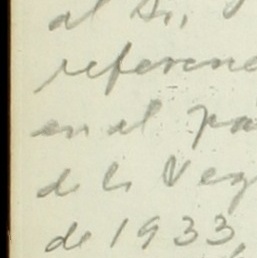 al Sr.,
referenc
en el pa
de la Veg
de 1933,